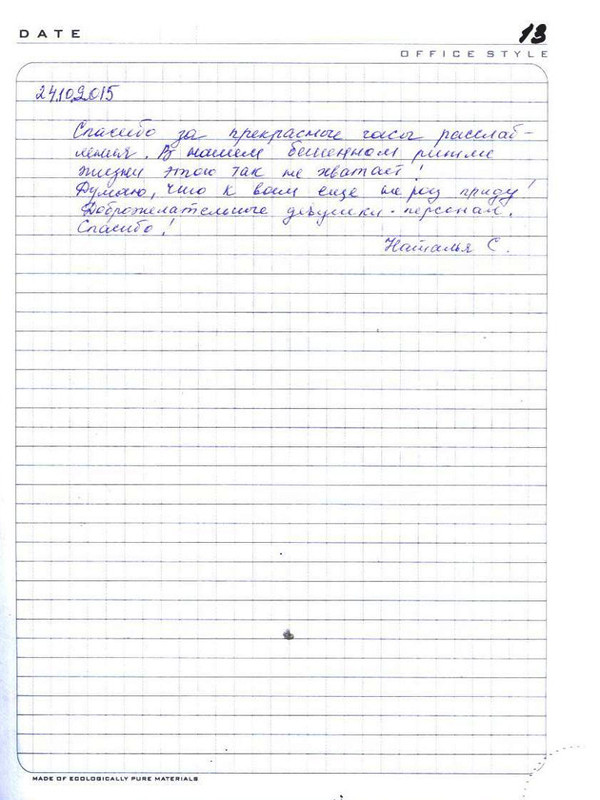 DATE
13
OFFICE STYLE
24.10.2015
Спасибо за прекрасные часы расслаб-
ления. В нашем бешенном ритме
жизни этого так не хватает!
Думаю, что к вам еще не раз приду!
Доброжелательные девушки - персонал.
Спасибо!
Наталья С.
MADE OF ECOLOGICALLY PURE MATERIALS